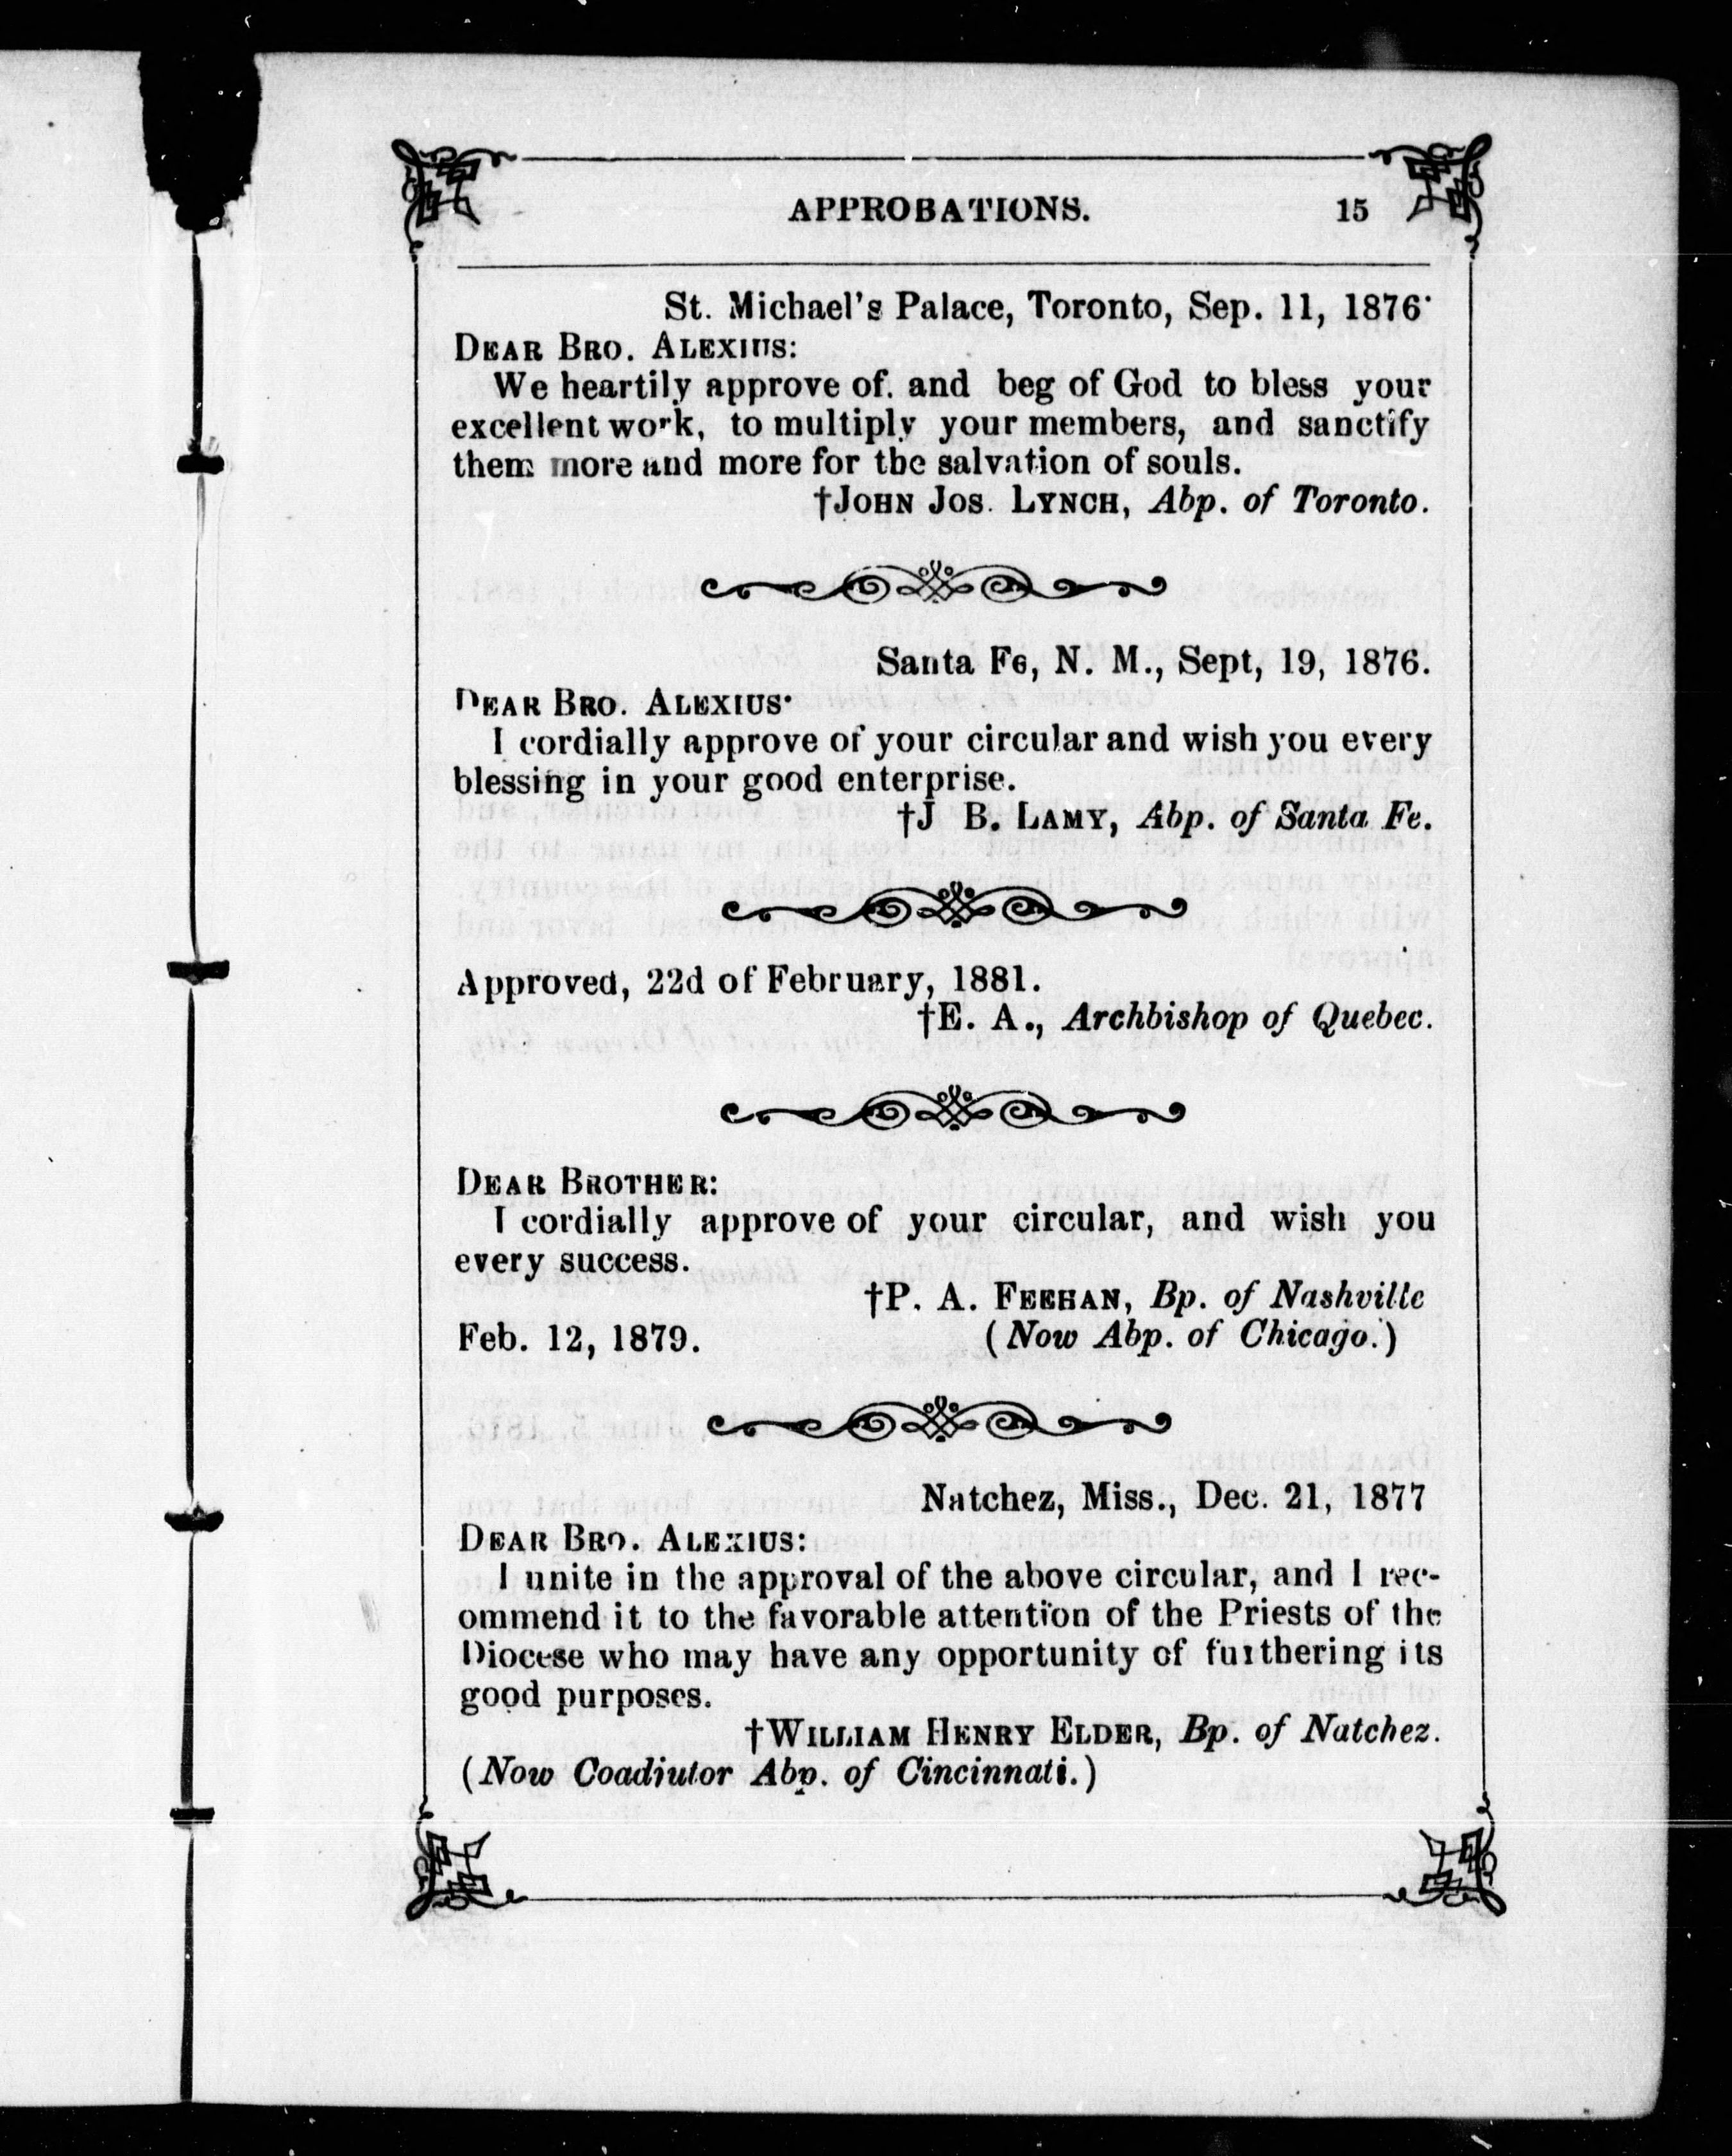 APPROBATIONS. 15
St. Michael's Palace, Toronto, Sep. 11, 1876.
DEAR BRO. ALEXIUS:
We heartily approve of. and beg of God to bless your
excellent work, to multiply your members, and sanctify
them more and more for the salvation of souls.
†JOHN JOS. LYNCH, Abp. of Toronto.
Santa Fe, N. M., Sept, 19, 1876.
DEAR BRO. ALEXIUS:
I cordially approve of your circular and wish you every
blessing in your good enterprise.
†J B. LAMY, Abp. of Santa Fe.
Approved, 22d of February, 1881.
†E. A., Archbishop of Quebec.
DEAR BROTHER:
I cordially approve of your circular, and wish you
every success.
†P. A. FEEHAN, Bp. of Nashville
Feb. 12, 1879. (Now Abp. of Chicago.)
Natchez, Miss., Dec. 21, 1877
DEAR BRO. ALEXIUS:
I unite in the approval of the above circular, and I rec-
ommend it to the favorable attention of the Priests of the
Diocese who may have any opportunity of furthering its
good purposes.
†WILLIAM HENRY ELDER, Bp. of Natchez.
(Now Coadjutor Abp. of Cincinnati.)